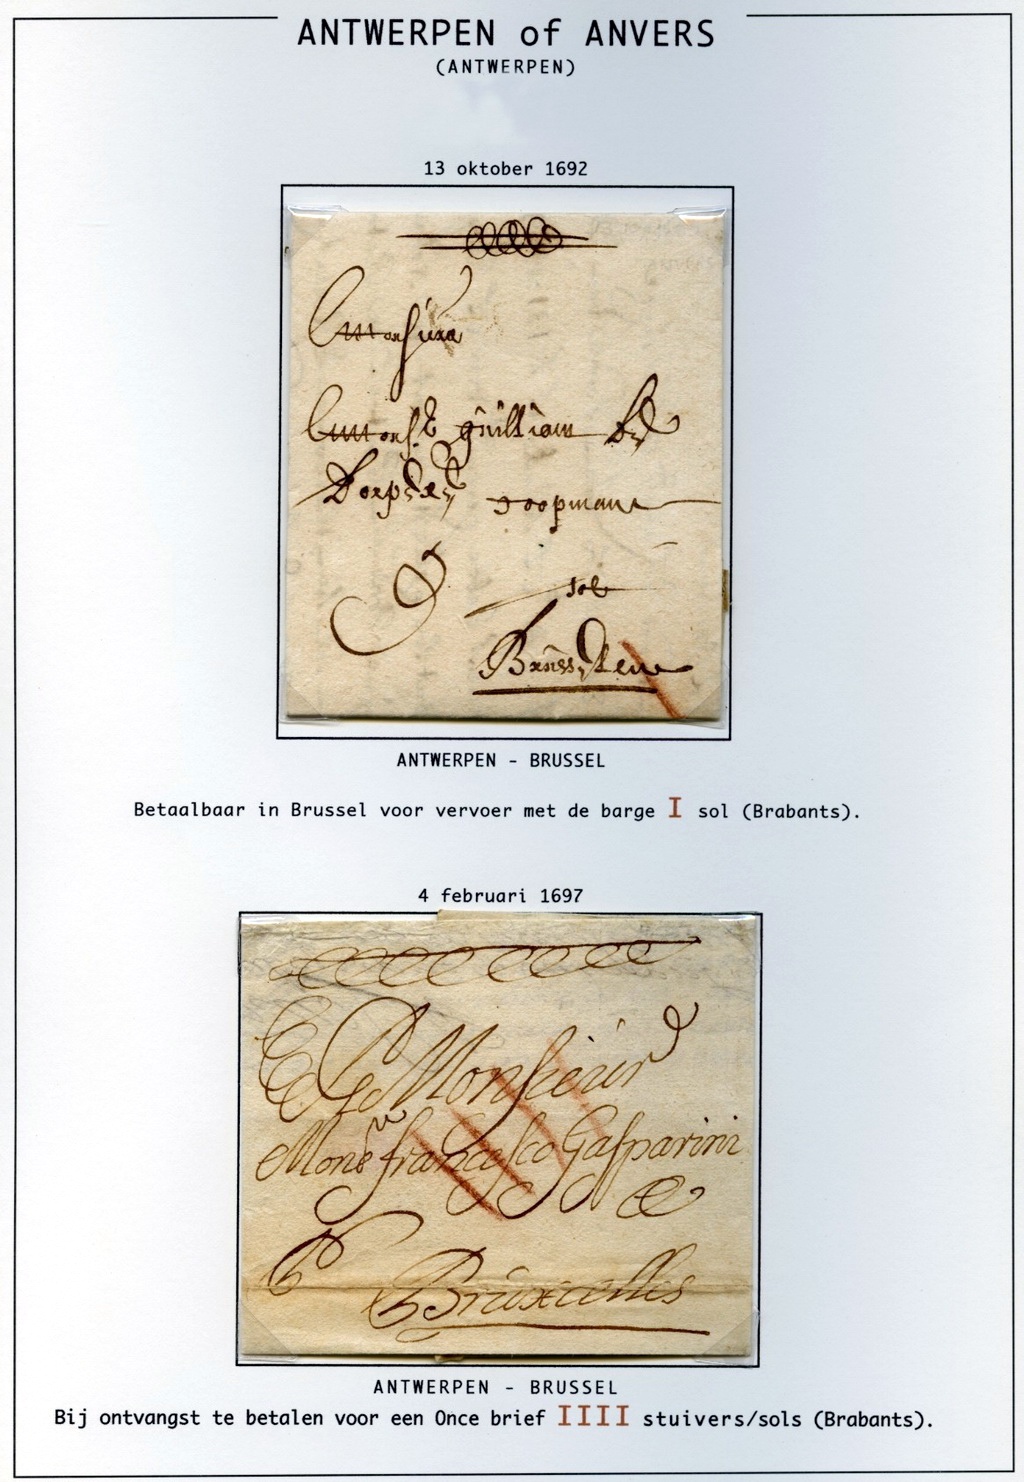 ANTWERPEN of ANVERS
(ANTWERPEN)
13 oktober 1692
Monsieur
Mons.r guilliam de
coopman
tot
Brussel
ANTWERPEN - BRUSSEL
Betaalbaar in Brussel voor vervoer met de barge I sol (Brabants).
4 februari 1697
A Monsieur
Mons francesco Gasparini
Bruxcelles
ANTWERPEN - BRUSSEL
Bij ontvangst te betalen voor een Once brief IIII stuivers/sols (Brabants).